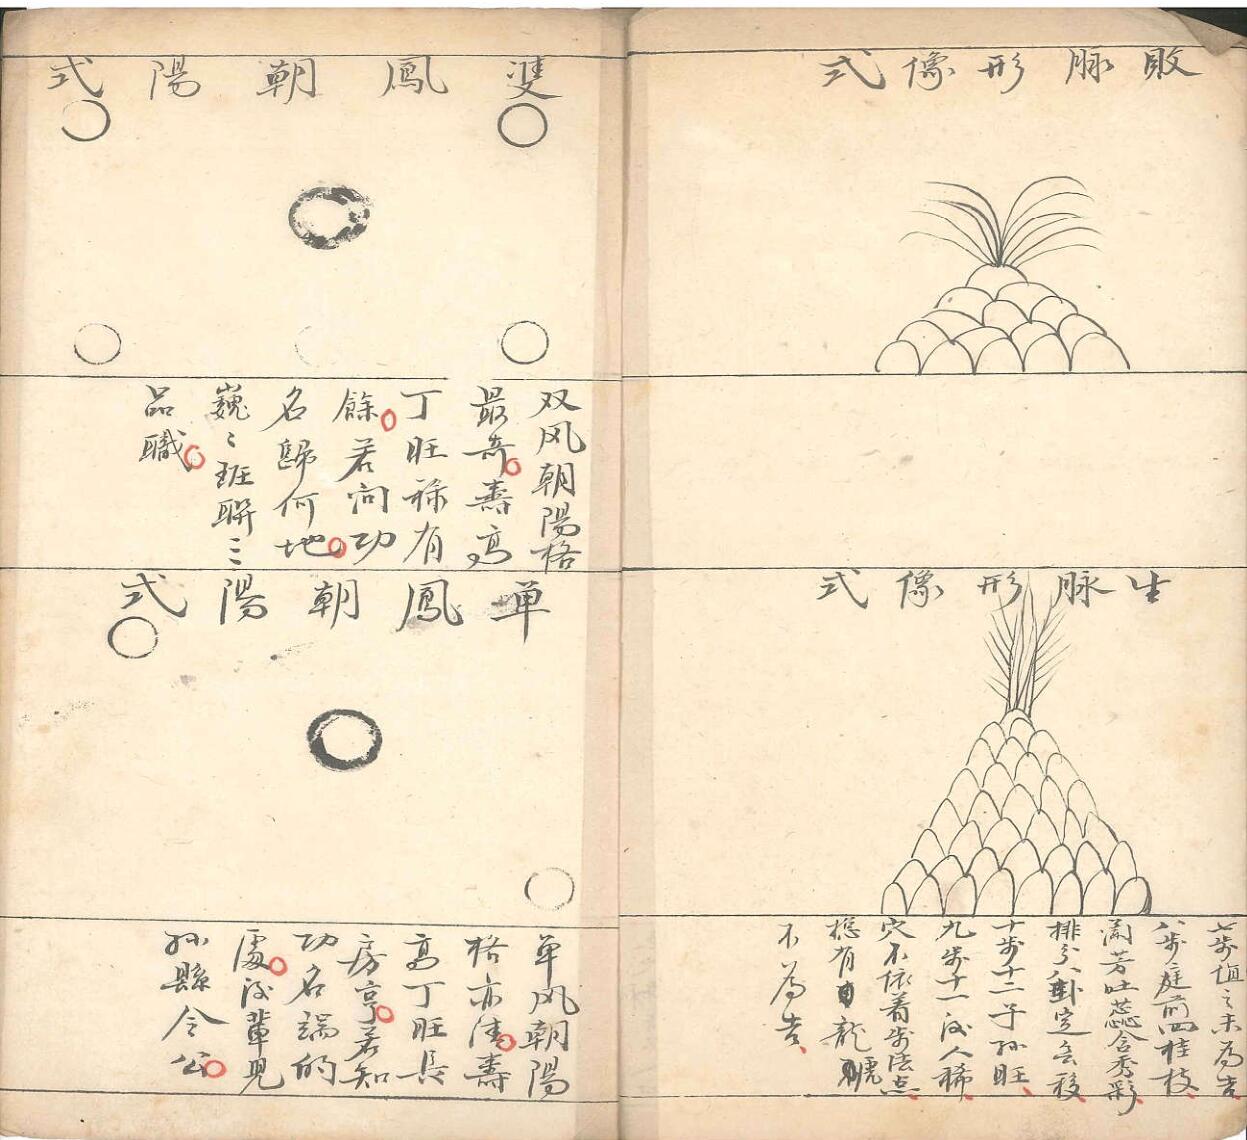 敗脉形像式
生脉形像式
七步值之未為吉
八步庭前四桂枝
蘭芳吐蕊含秀彩
排分八卦定無移
十步十二子孫旺
九步十一後人稀
穴不依着步法点
總有龍虎
不為吉
雙鳳朝陽式
双凤朝陽格
最奇壽高
丁旺祿有
餘若问功
名歸何地
巍〻班聨三
品職
單鳳朝陽式
单凤朝陽
格亦佳壽
高丁旺長
房亨若知
功名端的
處後輩兒
孫縣令公